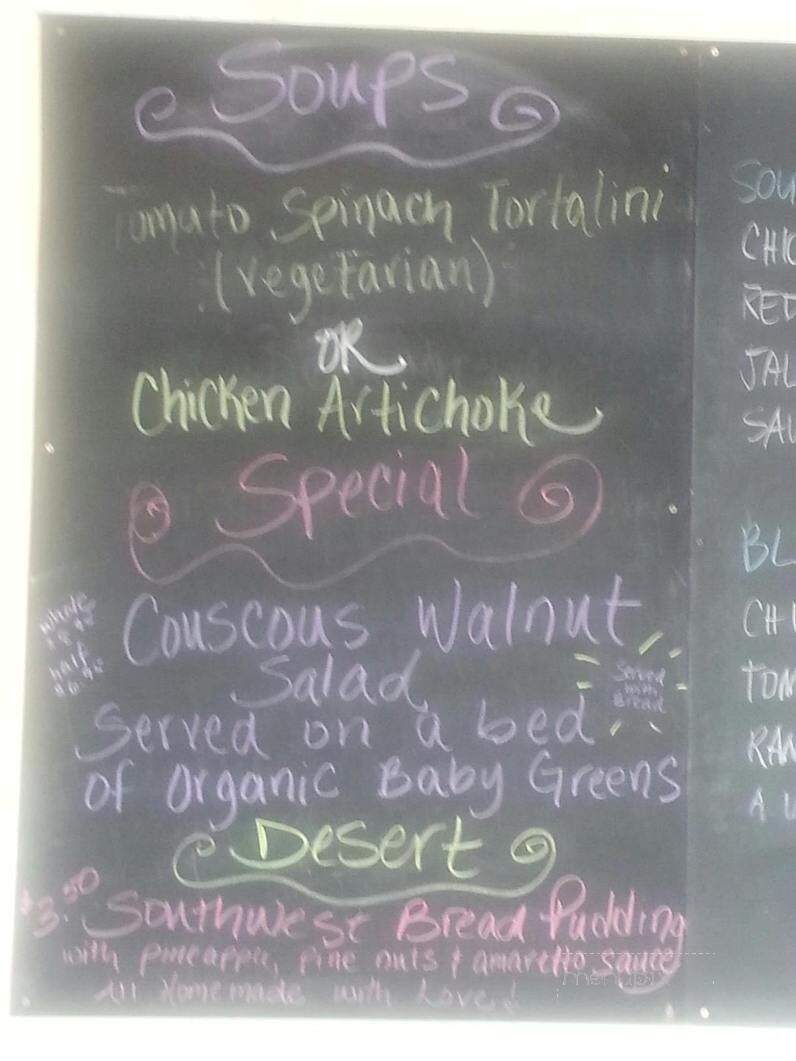 Soups
Tomato Spinach Tortalini
(vegetarian)
OR
Chicken Artichoke
Special
whole
half
Couscous Walnut
Salad
Served
Bread
Served on a bed
of organic Baby Greens
Desert
$3.50 Southwest Bread Pudding
with pineapple, pine nuts & amaretto sauce
All Homemade with Love!
menupix
SOU
CHIC
RED
JAL
SAU
BL
CHI
TOM
RAN
A U